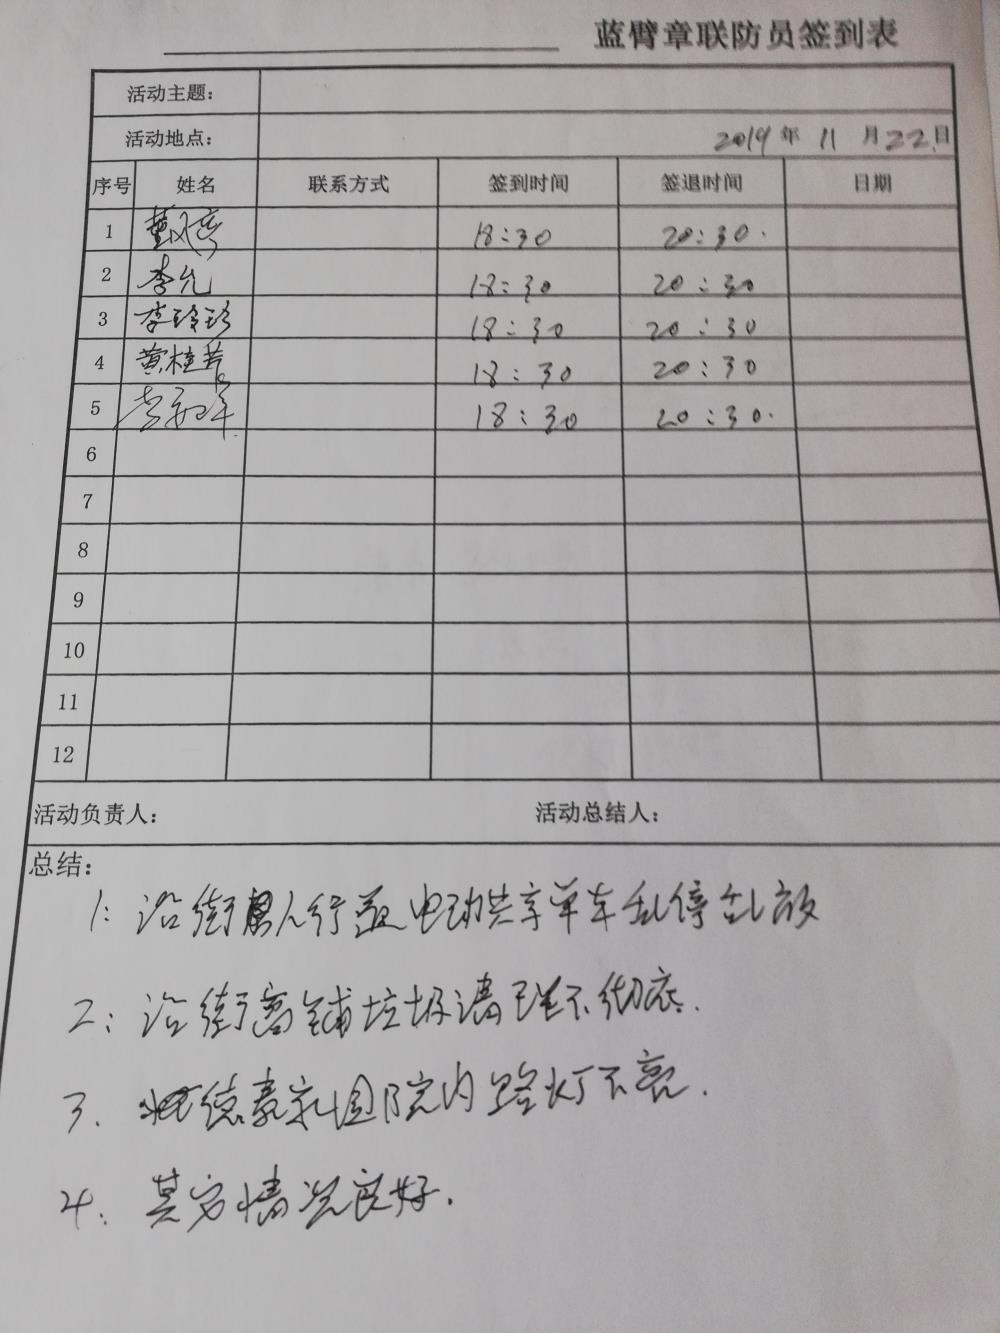 蓝臂章联防员签到表
活动主题：
活动地点： 2019年11月22日
序号 姓名 联系方式 签到时间 签退时间 日期
1 18:30 20:30.
2 李允 18:30 20:30
3 李玲珍 18:30 20:30
4 黄桂芳 18:30 20:30
5 18:30 20:30.
6
7
8
9
10
11
12
活动负责人： 活动总结人：
总结：
1: 沿街人行道电动共享单车乱停乱放
2: 沿街商铺垃圾清理不彻底.
3. 德泰家园院内路灯不亮.
4. 其它情况良好.